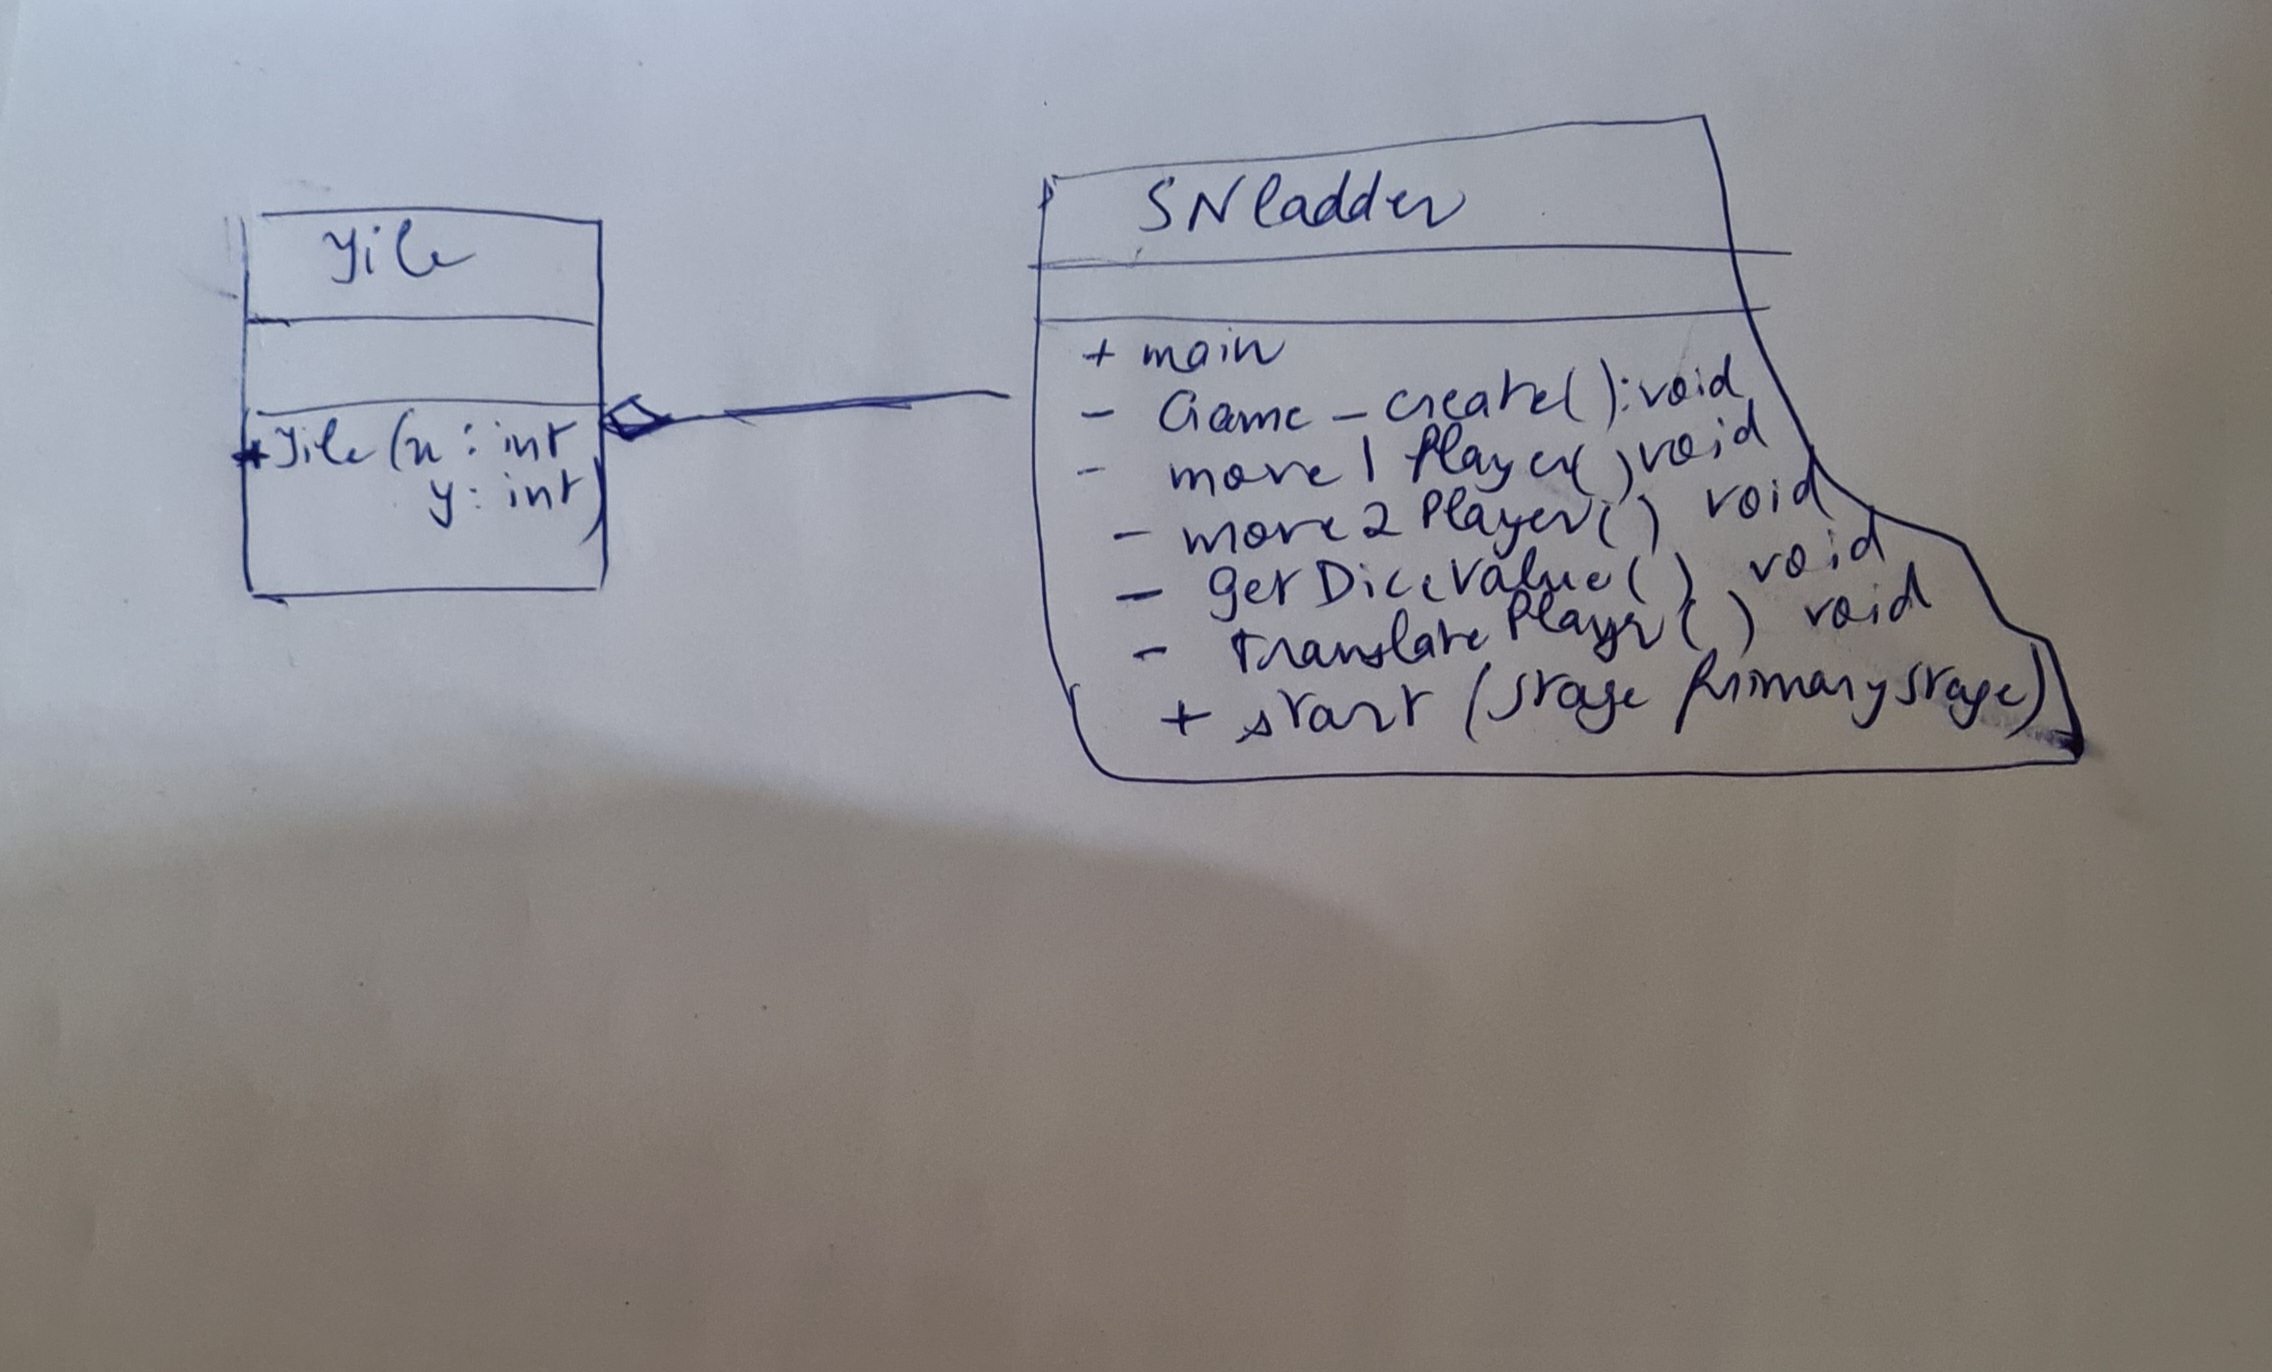 Tile
+Tile(x: int
y: int)
SNladder
+ main
- Game_create():void
- move1Player() void
- move2Player() void
- getDiceValue() void
- translatePlayer() void
+ start (Stage PrimaryStage)